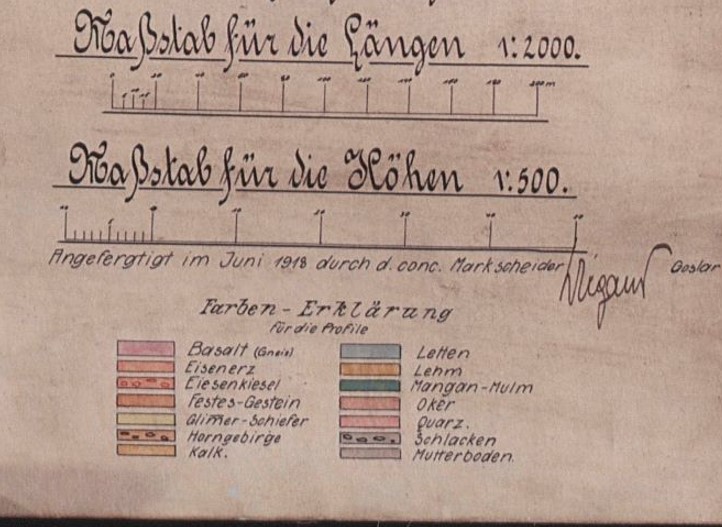 Maßstab für die Längen 1:2000.
Maßstab für die Höhen 1:500.
Angefergtigt im Juni 1918 durch d. conc. Markscheider Goslar
Farben-Erklärung
für die Profile
Basalt (Gneis)
Eisenerz
Eiesenkiesel
Festes-Gestein
Glimmer-Schiefer
Horngebirge
Kalk.
Letten
Lehm
Mangan-Mulm
Oker
Quarz.
Schlacken
Mutterboden.